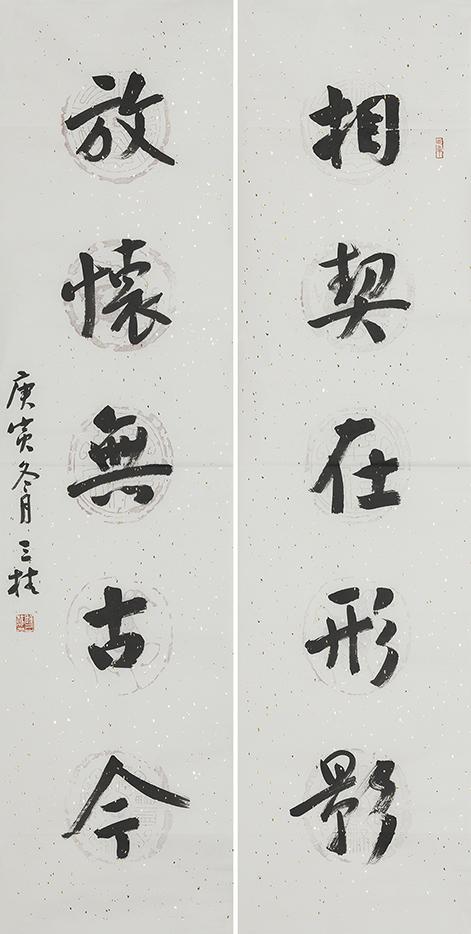 相契在形影
放懷無古今
庚寅冬月三桂